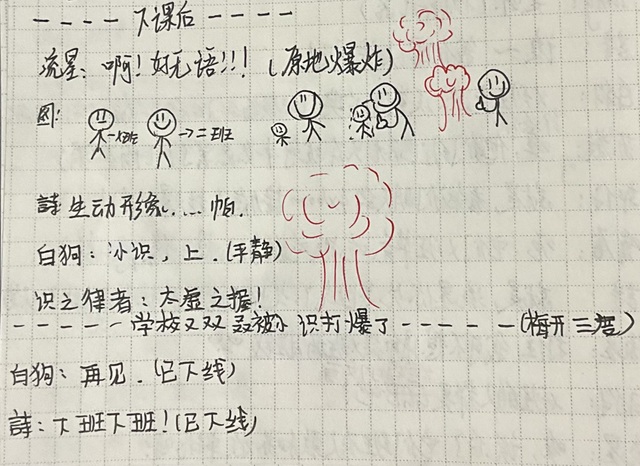 ----下课后----
流星：啊！好无语!!!（原地爆炸）
图：一班 二班
詩 生动形象……帕.
白狗：小识，上.（平静）
识之律者：太虚之握！
-----学校又双叒被小识打爆了-----（梅开三度）
白狗：再见.（已下线）
詩：下班下班！（已下线）